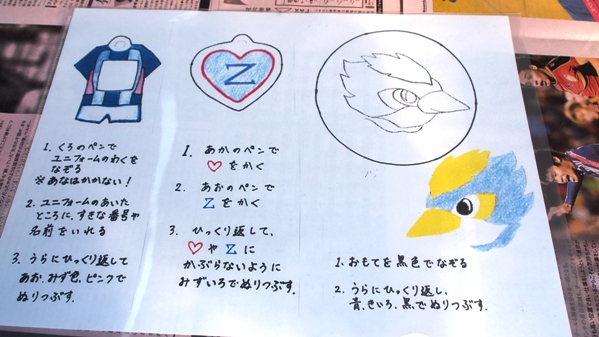 1. くろのペンで
ユニフォームのわくを
なぞる
※あなはかかない!
2. ユニフォームのあいた
ところに、すきな番号や
名前をいれる
3. うらにひっくり返して
あお、みず色、ピンクで
ぬりつぶす.
Z
1. あかのペンで
♡をかく
2. あおのペンで
Zをかく
3. ひっくり返して、
♡やZに
かぶらないように
みずいろでぬりつぶす.
1. おもてを黒色でなぞる
2. うらにひっくり返し、
青、きいろ、黒でぬりつぶす.